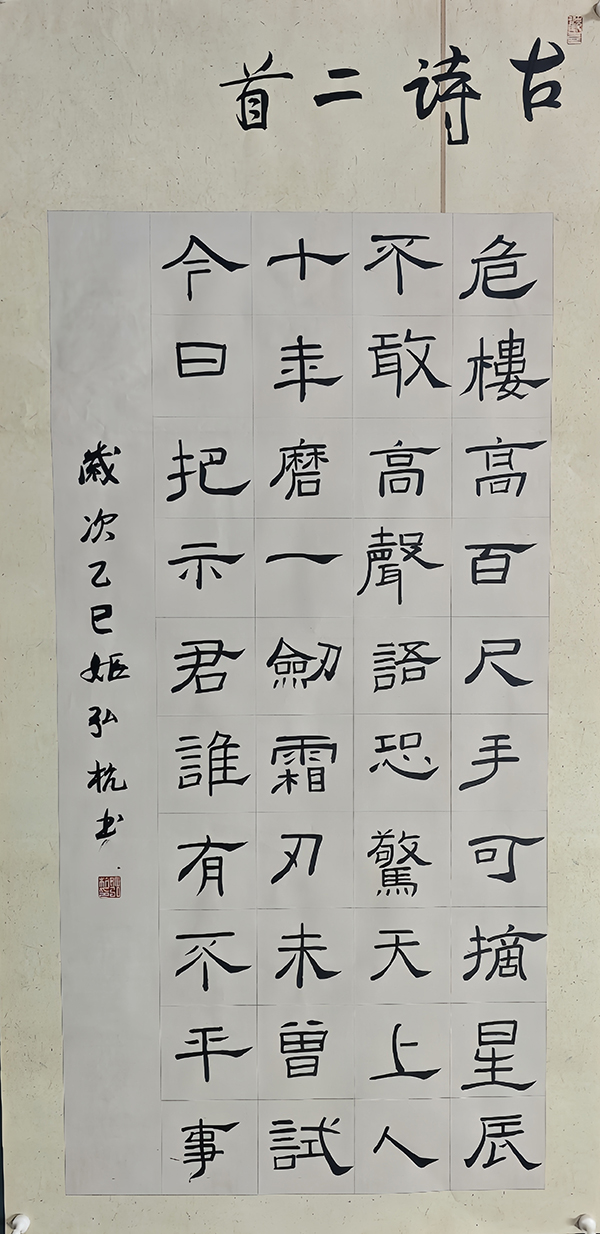 古詩二首
危樓高百尺手可摘星辰
不敢高聲語恐驚天上人
十年磨一劒霜刃未曾試
今日把示君誰有不平事
歲次乙巳姬弘杭书